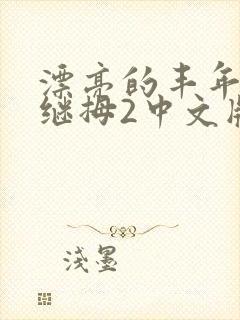 漂亮的丰年
继拇2中文版
浅墨